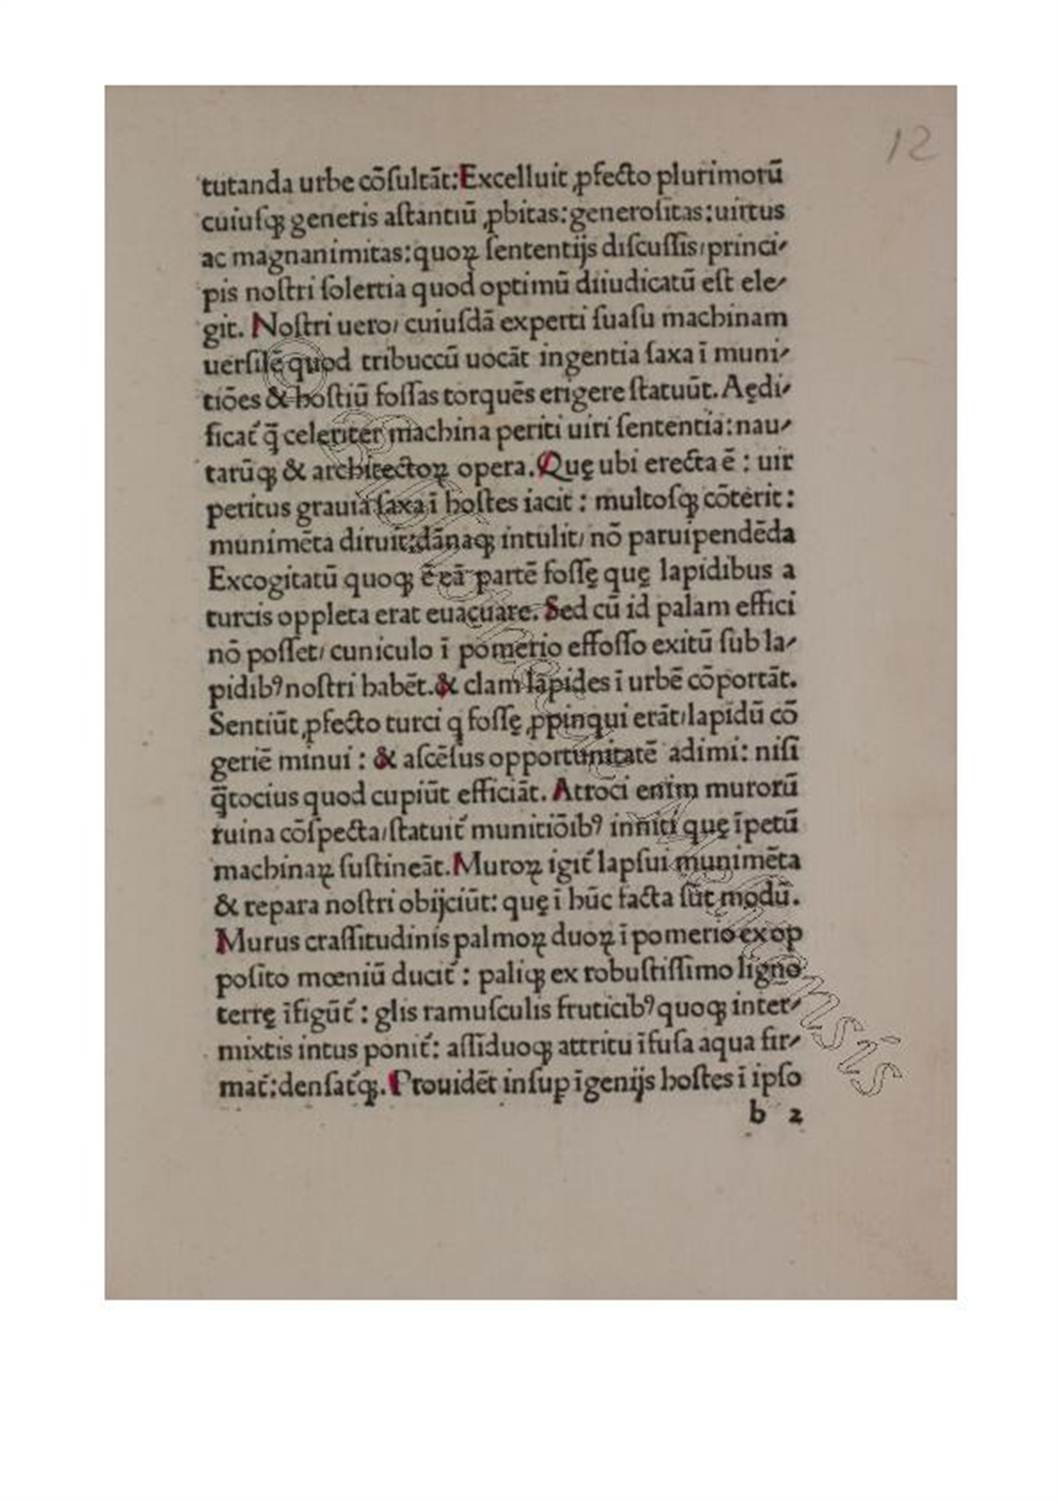 12
tutanda urbe cōſultāt: Excelluit ꝓfecto plurimorū
cuiuſqꝫ generis aſtantiū ꝓbitas: generoſitas: uirtus
ac magnanimitas: quoꝝ ſententijs diſcuſſis/ princi⸗
pis noſtri ſolertia quod optimū diiudicatū eſt ele⸗
git. Noſtri uero/ cuiuſdā experti ſuaſu machinam
uerſilē quod tribuccū uocāt ingentia ſaxa ī muni⸗
tiōes & hoſtiū foſſas torquēs erigere ſtatuūt. Aędi⸗
ficat᷑ q̄ celeriter machina periti uiri ſententia: nau⸗
tarūqꝫ & architectoꝝ opera. Quę ubi erecta ē : uir
peritus grauia ſaxa ī hoſtes iacit : multoſqꝫ cōterit :
munimēta diruit: dānaqꝫ intulit/ nō paruipendēda
Excogitatū quoqꝫ ē eā partē foſſę quę lapidibus a
turcis oppleta erat euacuare. Sed cū id palam effici
nō poſſet/ cuniculo ī pomerio effoſſo exitū ſub la⸗
pidibꝰ noſtri habēt. & clam lapides ī urbē cōportāt.
Sentiūt ꝓfecto turci q foſſę ꝓpinqui erāt/ lapidū cō
geriē minui : & aſcēſus opportunitatē adimi: niſi
q̄tocius quod cupiūt efficiāt. Atroci enim murorū
ruina cōſpecta/ ſtatuit᷑ munitiōibꝰ inniti quę īpetū
machinaꝝ ſuſtineāt. Muroꝝ igit᷑ lapſui munimēta
& repara noſtri obijciūt: quę ī hūc facta ſūt modū.
Murus craſſitudinis palmoꝝ duoꝝ ī pomerio ex op
poſito mœniū ducit᷑ : paliqꝫ ex robuſtiſſimo ligno
terrę īfigūt᷑ : glis ramuſculis fruticibꝰ quoqꝫ inter⸗
mixtis intus ponit᷑: aſſiduoqꝫ attritu īfuſa aqua fir⸗
mat᷑: denſat᷑qꝫ. Prouidēt inſup īgenijs hoſtes ī ipſo
b 2
© Bibliotheca